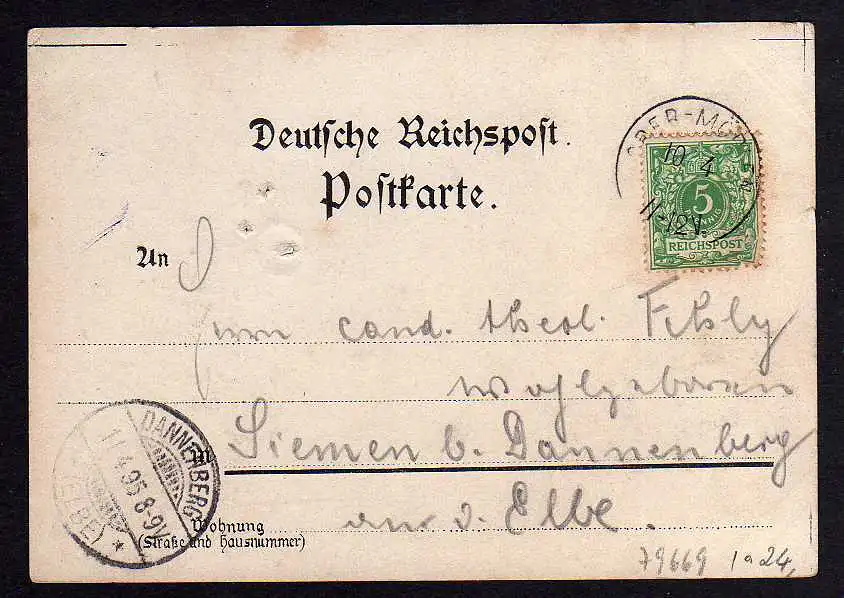 Deutsche Reichspost.
Postkarte.
10 4
11-12V.
5
PFENNIG
REICHSPOST
An
Herrn cand. theol. Fehly
Wohlgeboren
in Siemen b. Dannenberg
an d. Elbe.
DANNENBERG
11.4.95.8-9V.
(ELBE)
Wohnung
(Straße und Hausnummer)
79669 1a 24,